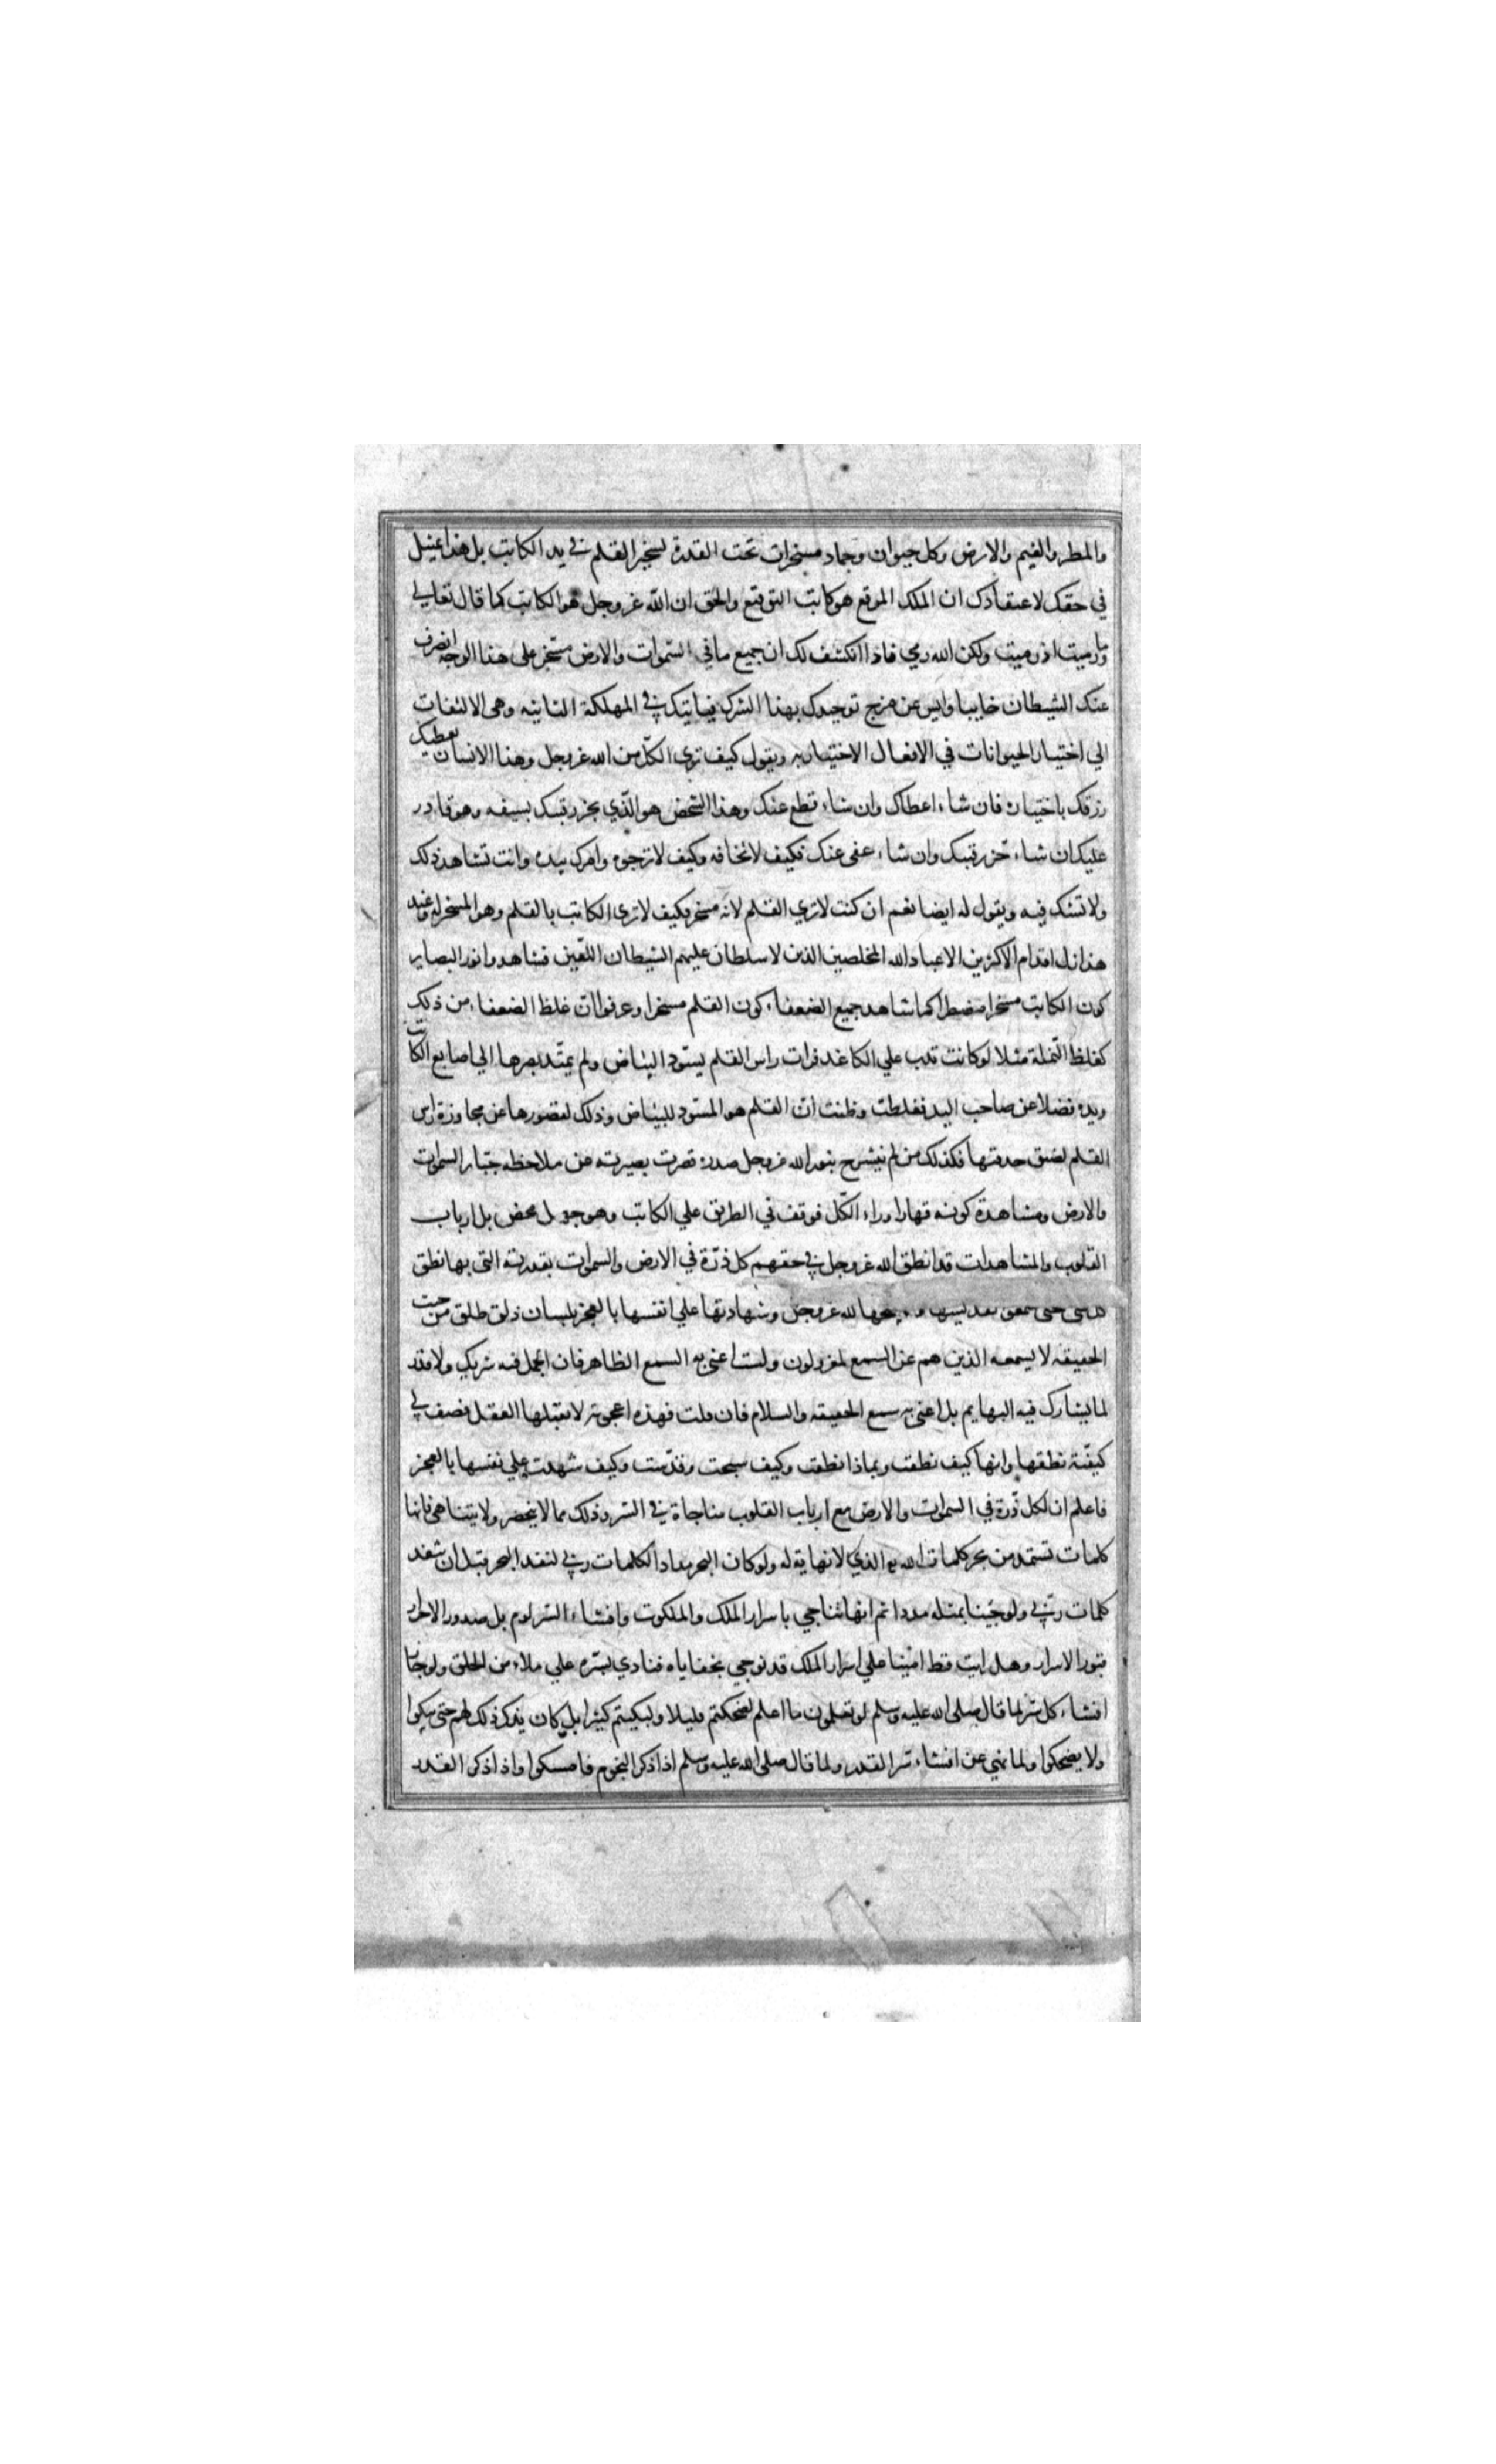 والمطر والغيم والارض وكل حيوان وجماد مسخرات تحت القدرة تسخير القلم في يد الكاتب بل هذا تمثيل
في حقك لاعتقادك ان الملك الموقع هو كاتب التوقيع والحق ان الله عز وجل هو الكاتب كما قال تعالى
وما رميت اذ رميت ولكن الله رمي فاذا انكشف لك ان جميع ما في السموات والارض مسخر على هذا الوجه انصرف
عنك الشيطان خايبا وايس عن مزج توحيدك بهذا الشرك فياتيك في المهلكة الثانيه وهى الالتفات
الي اختيار الحيوانات في الافعال الاختياريه ويقول كيف تري الكل من الله عز وجل وهذا الانسان يعطيك
رزقك باختياره فان شاء اعطاك وان شاء قطع عنك وهذا الشخص هو الذي يحز رقبتك بسيفه وهو قادر
عليك ان شاء حز رقبتك وان شاء عفى عنك فكيف لا تخافه وكيف لا ترجوه وامرك بيده وانت تشاهد ذلك
ولا تشك فيه ويقول له ايضا نعم ان كنت لا تري القلم لانه مسخر فكيف لا ترى الكاتب بالقلم وهو المسخر له وعند
هذا زل اقدام الاكثرين الا عباد الله المخلصين الذين لا سلطان عليهم الشيطان اللعين فشاهدوا بنور البصاير
كون الكاتب مسخرا مضطرا كما شاهد جميع الضعفاء كون القلم مسخرا وعرفوا ان غلط الضعفاء من ذلك
كغلط النملة مثلا لو كانت تدب علي الكاغد فرات راس القلم يسود البياض ولم يمتد بصرها الي اصابع الكاتب
ويده فضلا عن صاحب اليد فغلطت وظنت ان القلم هو المسود للبياض وذلك لقصورها عن مجاوزة راس
القلم لضيق حدقتها فكذلك من لم ينشرح بنور الله عز وجل صدره قصرت بصيرته عن ملاحظه جبار السموات
والارض ومشاهدة كونه قهارا وراء الكل فوقف في الطريق علي الكاتب وهو جهل محض بل ارباب
القلوب والمشاهدات قد انطق الله عز وجل في حقهم كل ذرة في الارض والسموات بقدرته التى بها نطق
كل شي حتى سمعوا تقديسها وتسبيحها لله عز وجل وشهادتها علي انفسها بالعجز بلسان ذلق طلق من حيث
الحقيقه لا يسمعه الذين هم عن السمع لمعزولون ولست اعنى به السمع الظاهر فان الجمل فيه شريك ولا قدر
لما يشارك فيه البهايم بل اعنى به سمع الحقيقه والسلام فان قلت فهذه اعجوبة لا يقبلها العقل فصف لي
كيفية نطقها وانها كيف نطقت وبماذا نطقت وكيف سبحت وقدست وكيف شهدت علي نفسها بالعجز
فاعلم ان لكل ذرة في السموات والارض مع ارباب القلوب مناجاة في السر وذلك مما لا ينحصر ولا يتناهى فانها
كلمات تستمد من بحر كلمات الله الذي لا نهاية له ولو كان البحر مدادا لكلمات ربي لنفد البحر قبل ان تنفد
كلمات ربي ولو جئنا بمثله مددا ثم انها تناجي باسرار الملك والملكوت وافشاء السر لوم بل صدور الاحرار
قبور الاسرار وهل رايت قط امينا علي اسرار الملك قد نوجي بخفاياه فنادي بسره علي ملاء من الخلق ولو جاز
افشاء كل سر لما قال صلى الله عليه وسلم لو تعلمون ما اعلم لضحكتم قليلا ولبكيتم كثيرا بل كان يذكر ذلك لهم حتى يبكوا
ولا يضحكوا ولما نهي عن افشاء سر القدر ولما قال صلى الله عليه وسلم اذا ذكر النجوم فامسكوا واذا ذكر القدر